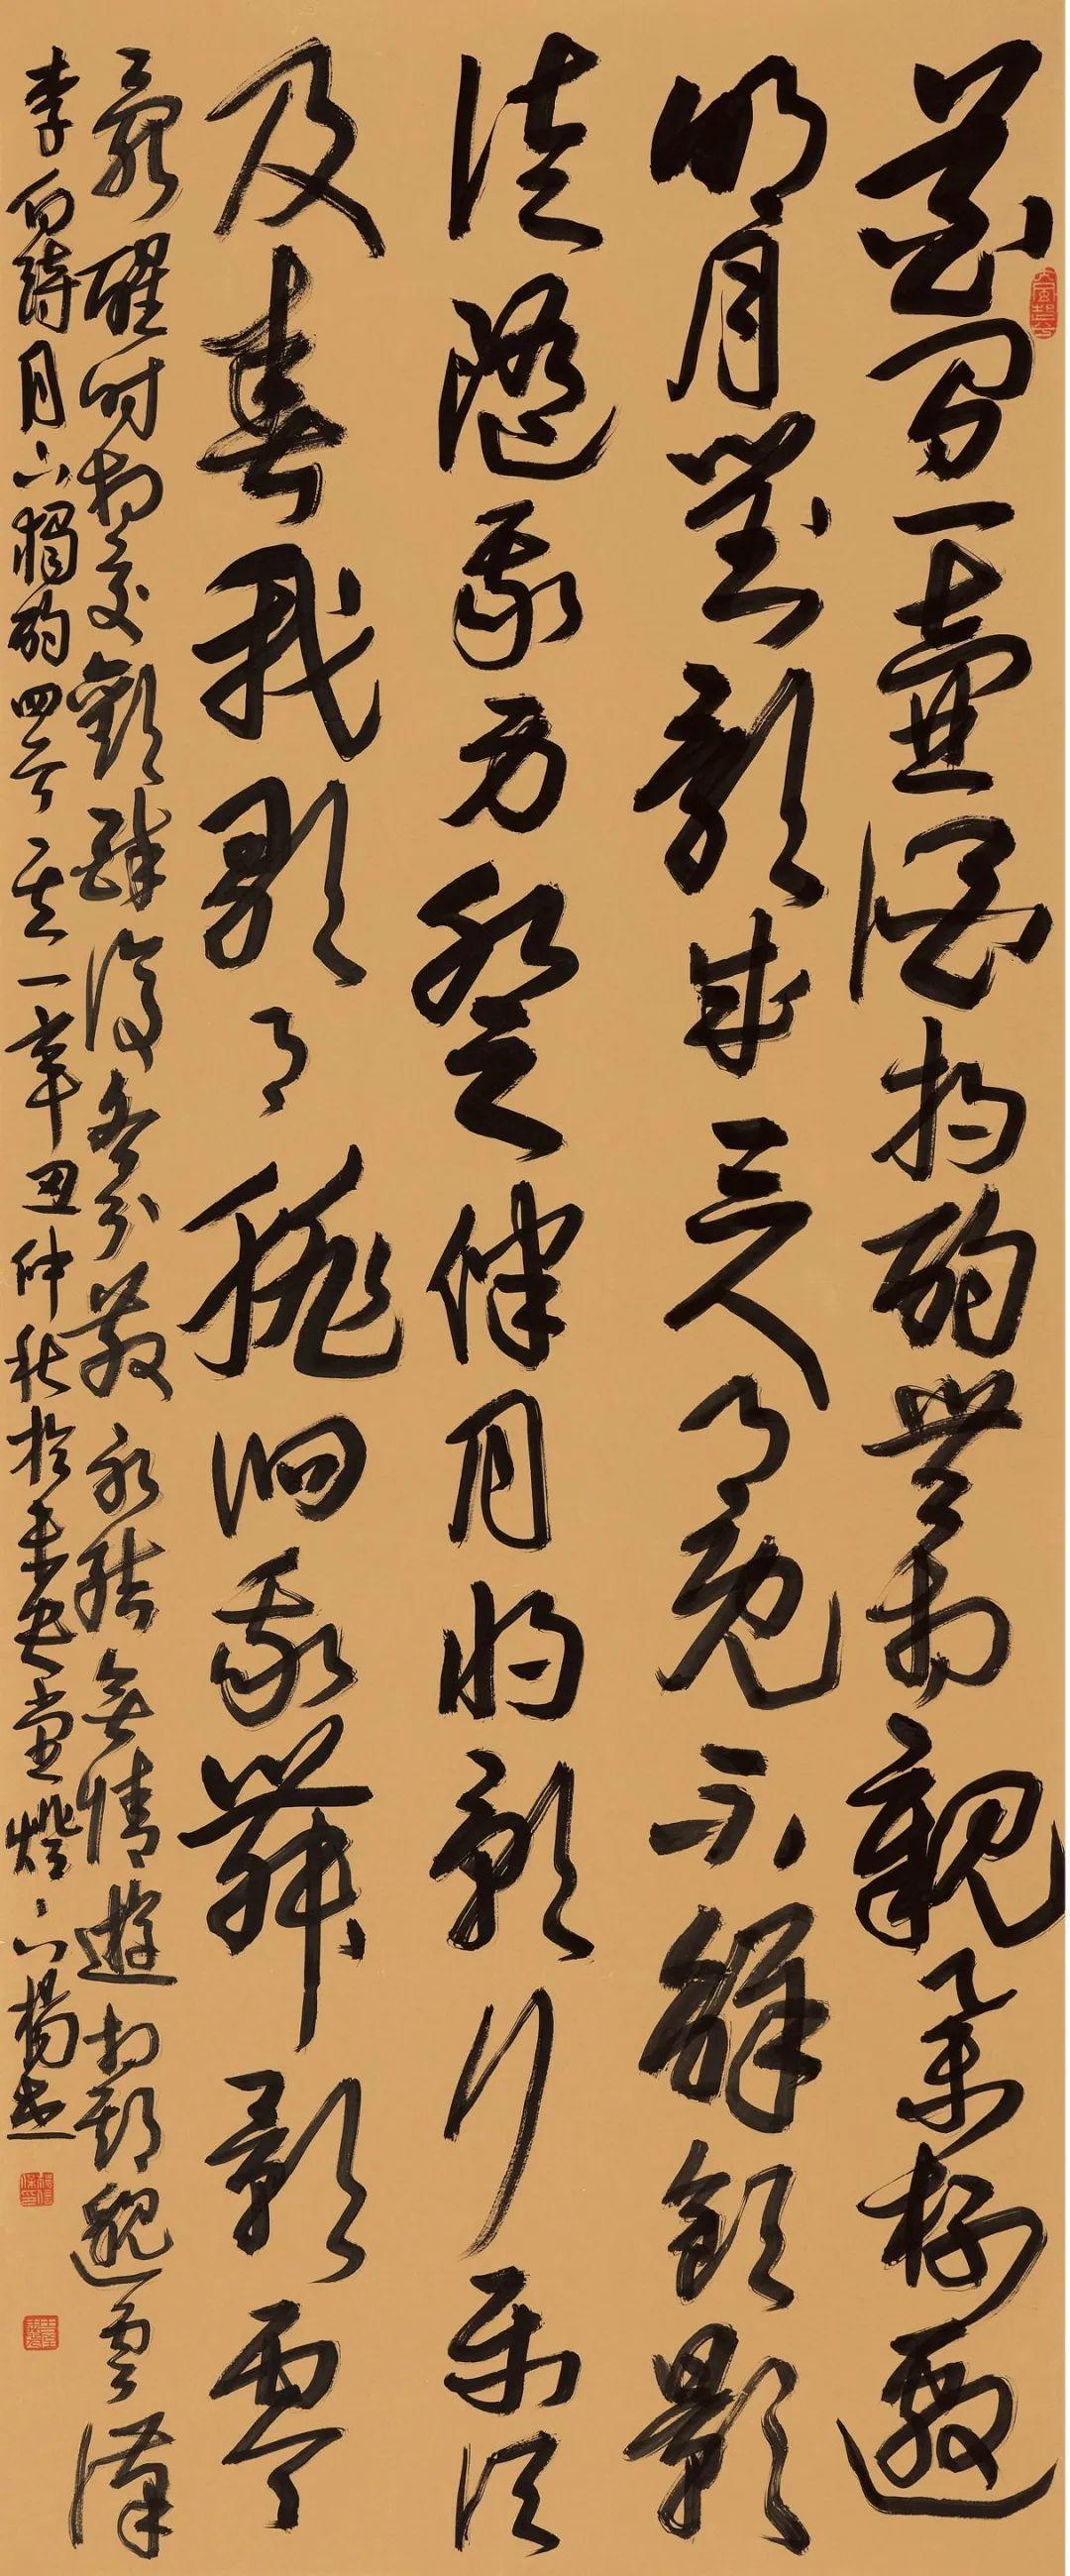 花間一壺酒獨酌無相親舉杯邀
明月對影成三人月既不解飲影
徒隨我身暫伴月將影行樂須
及春我歌月徘徊我舞影零
亂醒時相交歡醉後各分散永結無情遊相期邈雲漢
李白詩月下獨酌四首其一辛丑仲秋於堂燈下楊